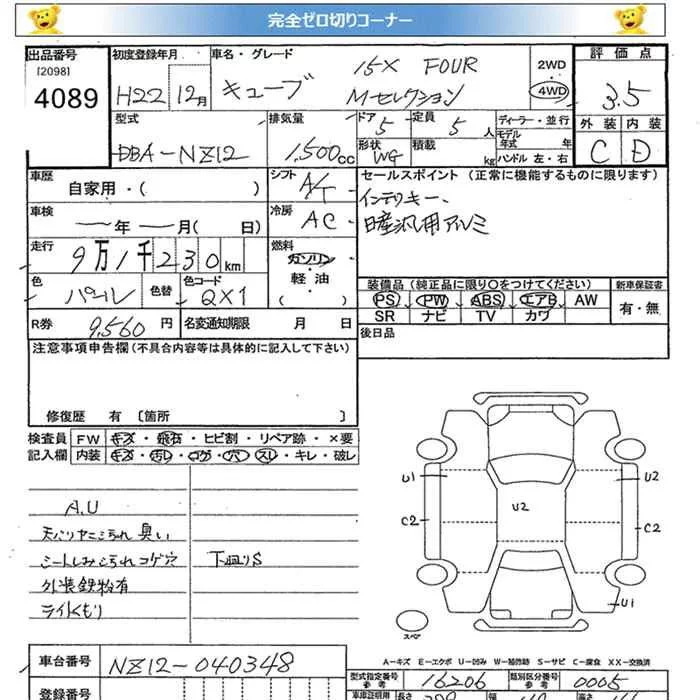 完全ゼロ切りコーナー
出品番号 初度登録年月 車名・グレード 2WD 評価点
[2098] 15X FOUR ・
4089 H22 12月 キューブ Mセレクション 4WD 3.5
型式 排気量 ドア 5 定員 5 人 ディーラー・並行 外装 内装
DBA-NZ12 1,500cc 形状 WG 積載 kg モデル年式 年 ハンドル 左・右 C D
車歴 自家用・( ) シフト A/T セールスポイント (正常に機能するものに限ります)
車検 年 月( 日) 冷房 AC インテリキー、
日産汎用アルミ
走行 9万1千230km 燃料 ガソリン・軽油・( )
色 パール 色替 色コード QX1 装備品 (純正品に限り○をつけてください) 新車保証書
PS PW ABS エアB AW 有・無
SR ナビ TV カワ
R券 9,560 円 名変通知期限 月 日 後日品
注意事項申告欄 (不具合内容等は具体的に記入して下さい)
修復歴 有 [箇所 ]
検査員 FW キズ・飛石・ヒビ割・リペア跡・×要
記入欄 内装 キズ・汚レ・コゲ・穴・スレ・キレ・破レ
A.U
天バリヤニ汚れ 臭い
シートしみ汚れコゲ穴 下廻りS
外装鉄粉有
ライトくもり
U1 U2 U2
C2 C2
U1
スペア
A-キズ E-エクボ U-凹み W-補修跡 S-サビ C-腐食 XX-交換済
車台番号 NZ12-040348 型式指定番号 参考 16206 類別区分番号 参考 0005
登録番号 車庫証明用 長さ